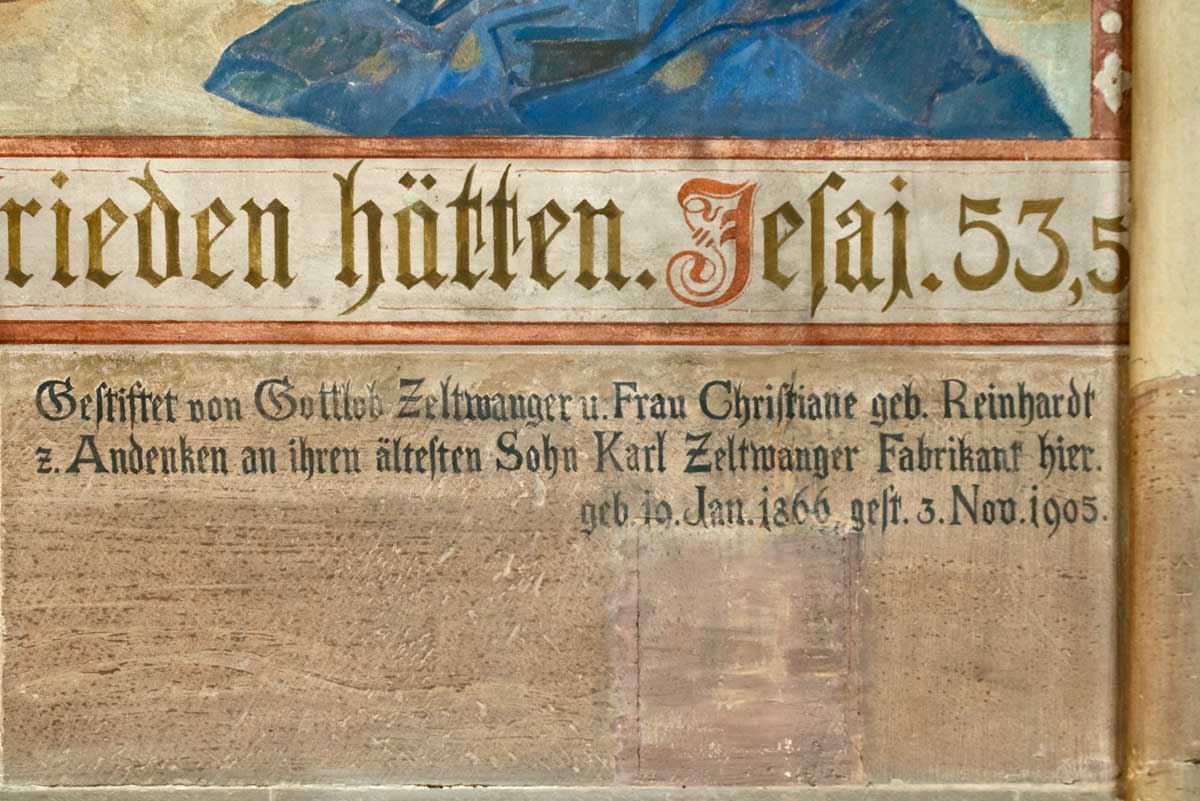 rieden hätten. Jesaj. 53,5
Gestiftet von Gottlob Zeltwanger u. Frau Christiane geb. Reinhardt
z. Andenken an ihren ältesten Sohn Karl Zeltwanger Fabrikant hier.
geb. 19. Jan. 1866, gest. 3. Nov. 1905.